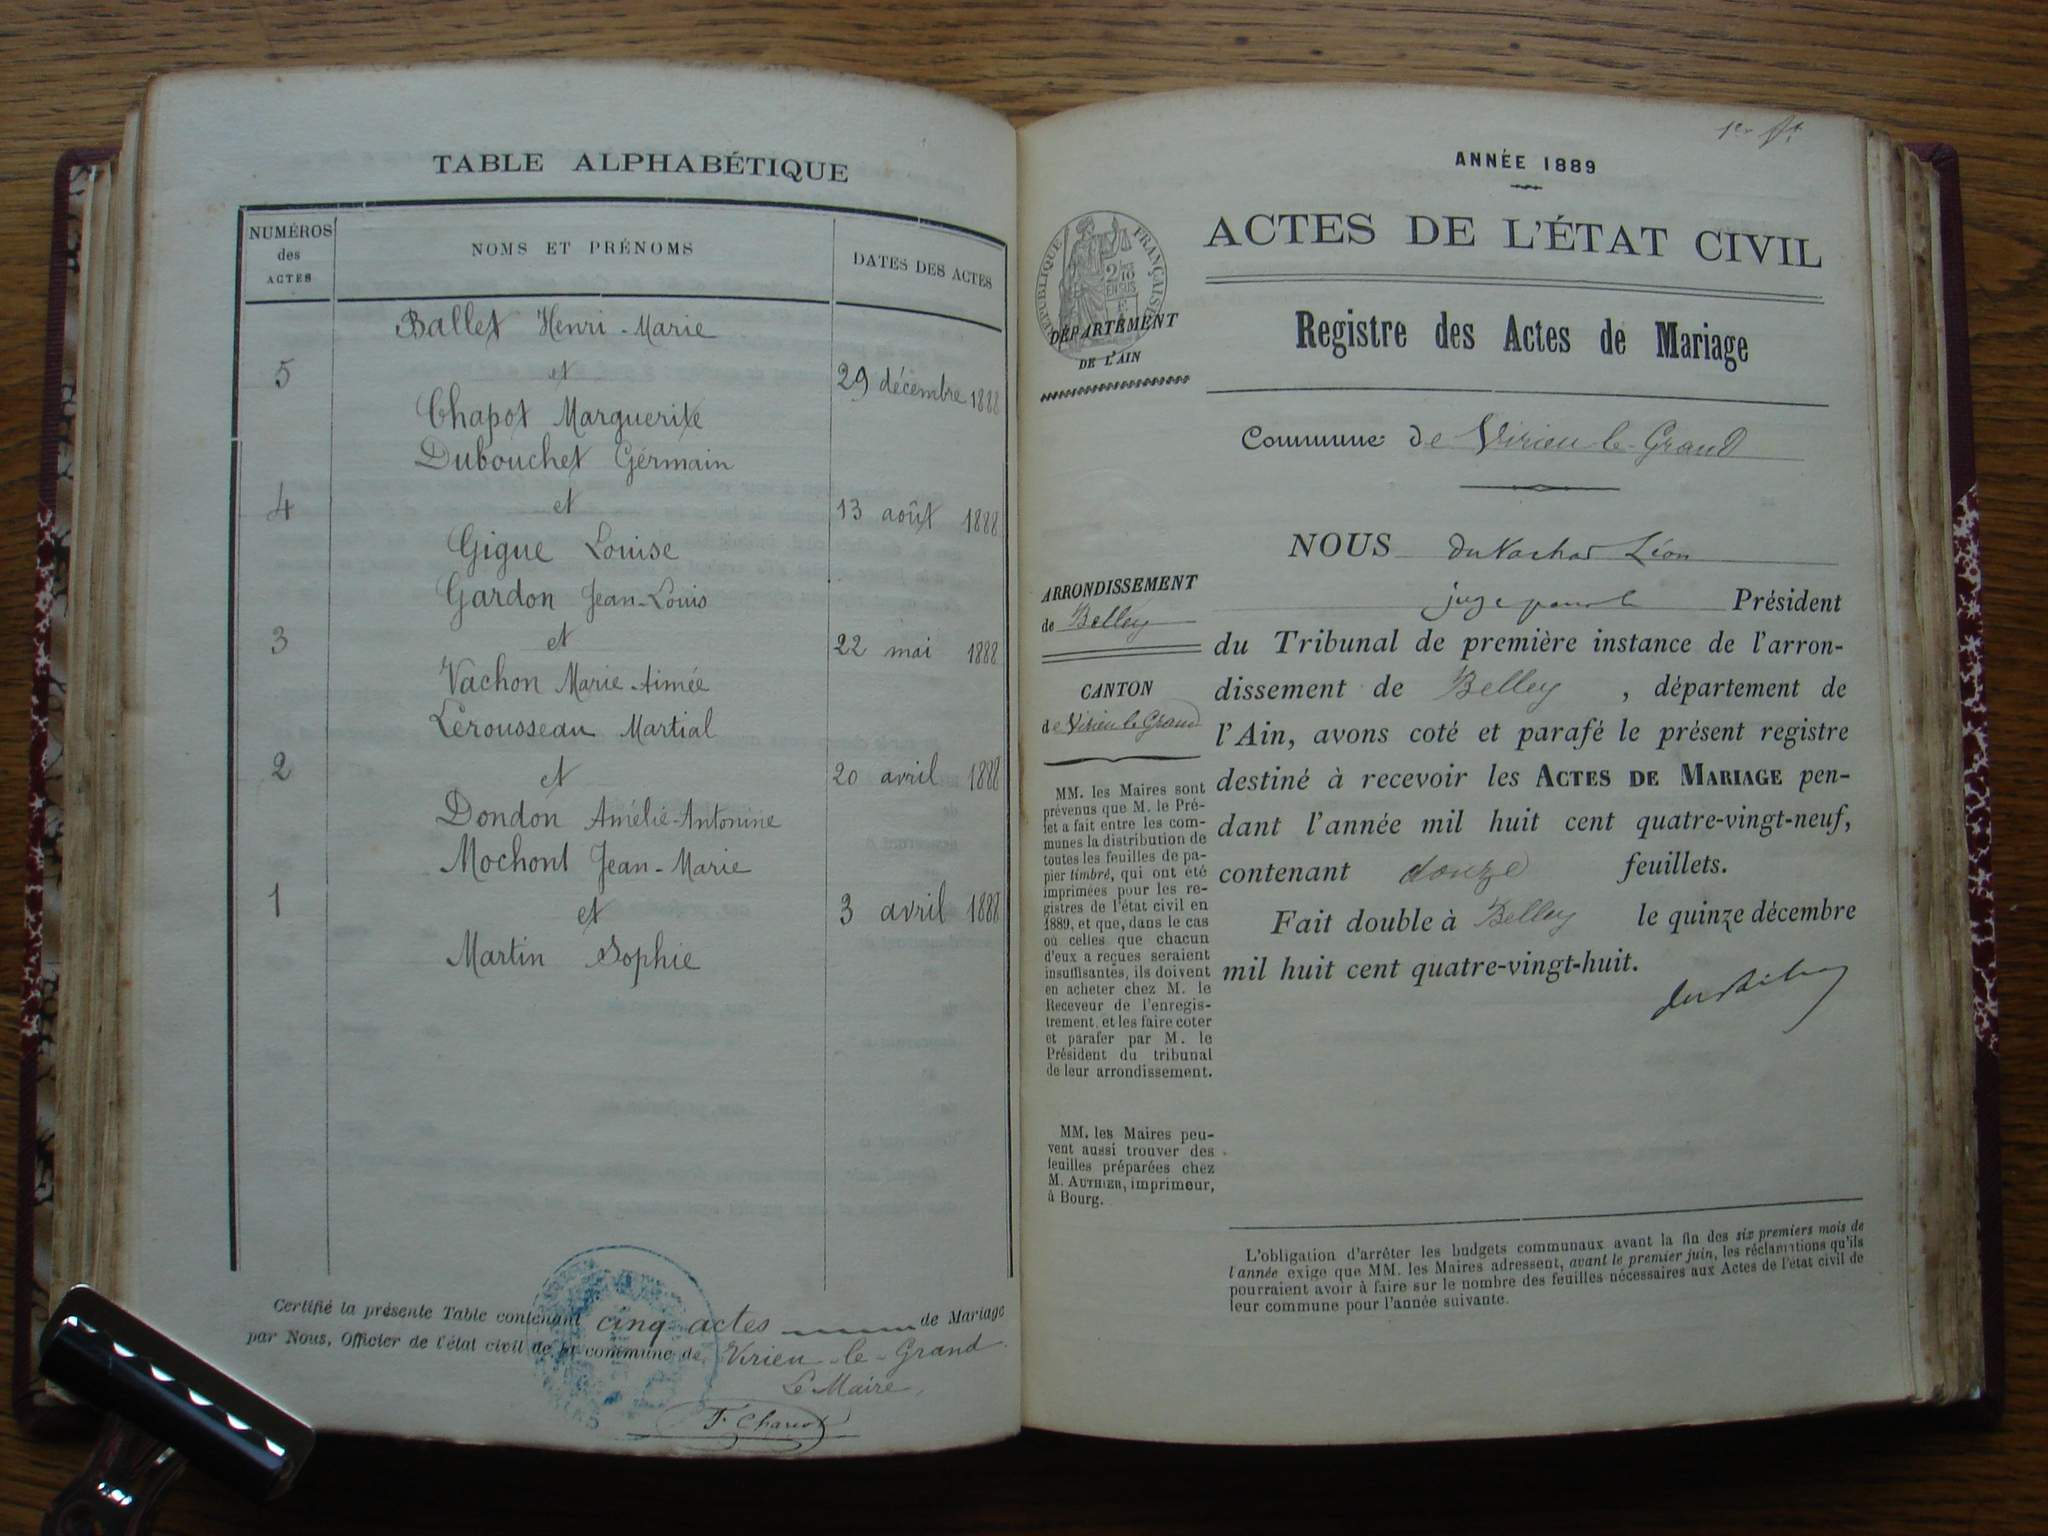 TABLE ALPHABÉTIQUE
NUMÉROS des ACTES
NOMS ET PRÉNOMS
DATES DES ACTES
Ballet Henri-Marie
5 et 29 décembre 1888
Chapot Marguerite
Dubouchet Germain
4 et 13 août 1888
Gigue Louise
Gardon Jean-Louis
3 et 22 mai 1888
Vachon Marie-Aimée
Lerousseau Martial
2 et 20 avril 1888
Dondon Amélie-Antonine
Mochont Jean-Marie
1 et 3 avril 1888
Martin Sophie
Certifié la présente Table contenant cinq actes de Mariage
par Nous, Officier de l'état civil de la commune de Virieu-le-Grand
Le Maire,
ANNÉE 1889
RÉPUBLIQUE FRANÇAISE
2/10 EN SUS
DÉPARTEMENT
DE L'AIN
ACTES DE L'ÉTAT CIVIL
Registre des Actes de Mariage
Commune de Virieu-le-Grand
NOUS Léon
Président
du Tribunal de première instance de l'arron-
dissement de Belley, département de
l'Ain, avons coté et parafé le présent registre
destiné à recevoir les ACTES DE MARIAGE pen-
dant l'année mil huit cent quatre-vingt-neuf,
contenant douze feuillets.
Fait double à Belley le quinze décembre
mil huit cent quatre-vingt-huit.
ARRONDISSEMENT
de Belley
CANTON
de Virieu le Grand
MM. les Maires sont
prévenus que M. le Pré-
fet a fait entre les com-
munes la distribution de
toutes les feuilles de pa-
pier timbré, qui ont été
imprimées pour les re-
gistres de l'état civil en
1889, et que, dans le cas
où celles que chacun
d'eux a reçues seraient
insuffisantes, ils doivent
en acheter chez M. le
Receveur de l'enregis-
trement, et les faire coter
et parafer par M. le
Président du tribunal
de leur arrondissement.
MM. les Maires peu-
vent aussi trouver des
feuilles préparées chez
M. AUTHIER, imprimeur,
à Bourg.
L'obligation d'arrêter les budgets communaux avant la fin des six premiers mois de
l'année exige que MM. les Maires adressent, avant le premier juin, les réclamations qu'ils
pourraient avoir à faire sur le nombre des feuilles nécessaires aux Actes de l'état civil de
leur commune pour l'année suivante.